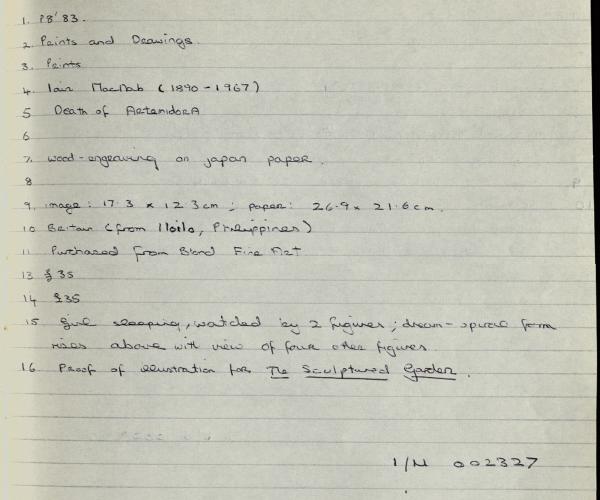 1. P8'83.
2. Prints and Drawings.
3. Prints
4. Iain MacNab (1890-1967)
5 Death of ArtemidorA
6
7. wood-engraving on japan paper.
8
9. image: 17.3 x 12.3cm; paper: 26.9 x 21.6cm.
10 Britain (from Iloilo, Philippines)
11 Purchased from Blond Fine Art
13 £35
14 £35
15. Girl sleeping, watched by 2 figures; dream-spiral form
rises above with view of four other figures.
16. Proof of illustration for The Sculptured Garden.
I/N 002327